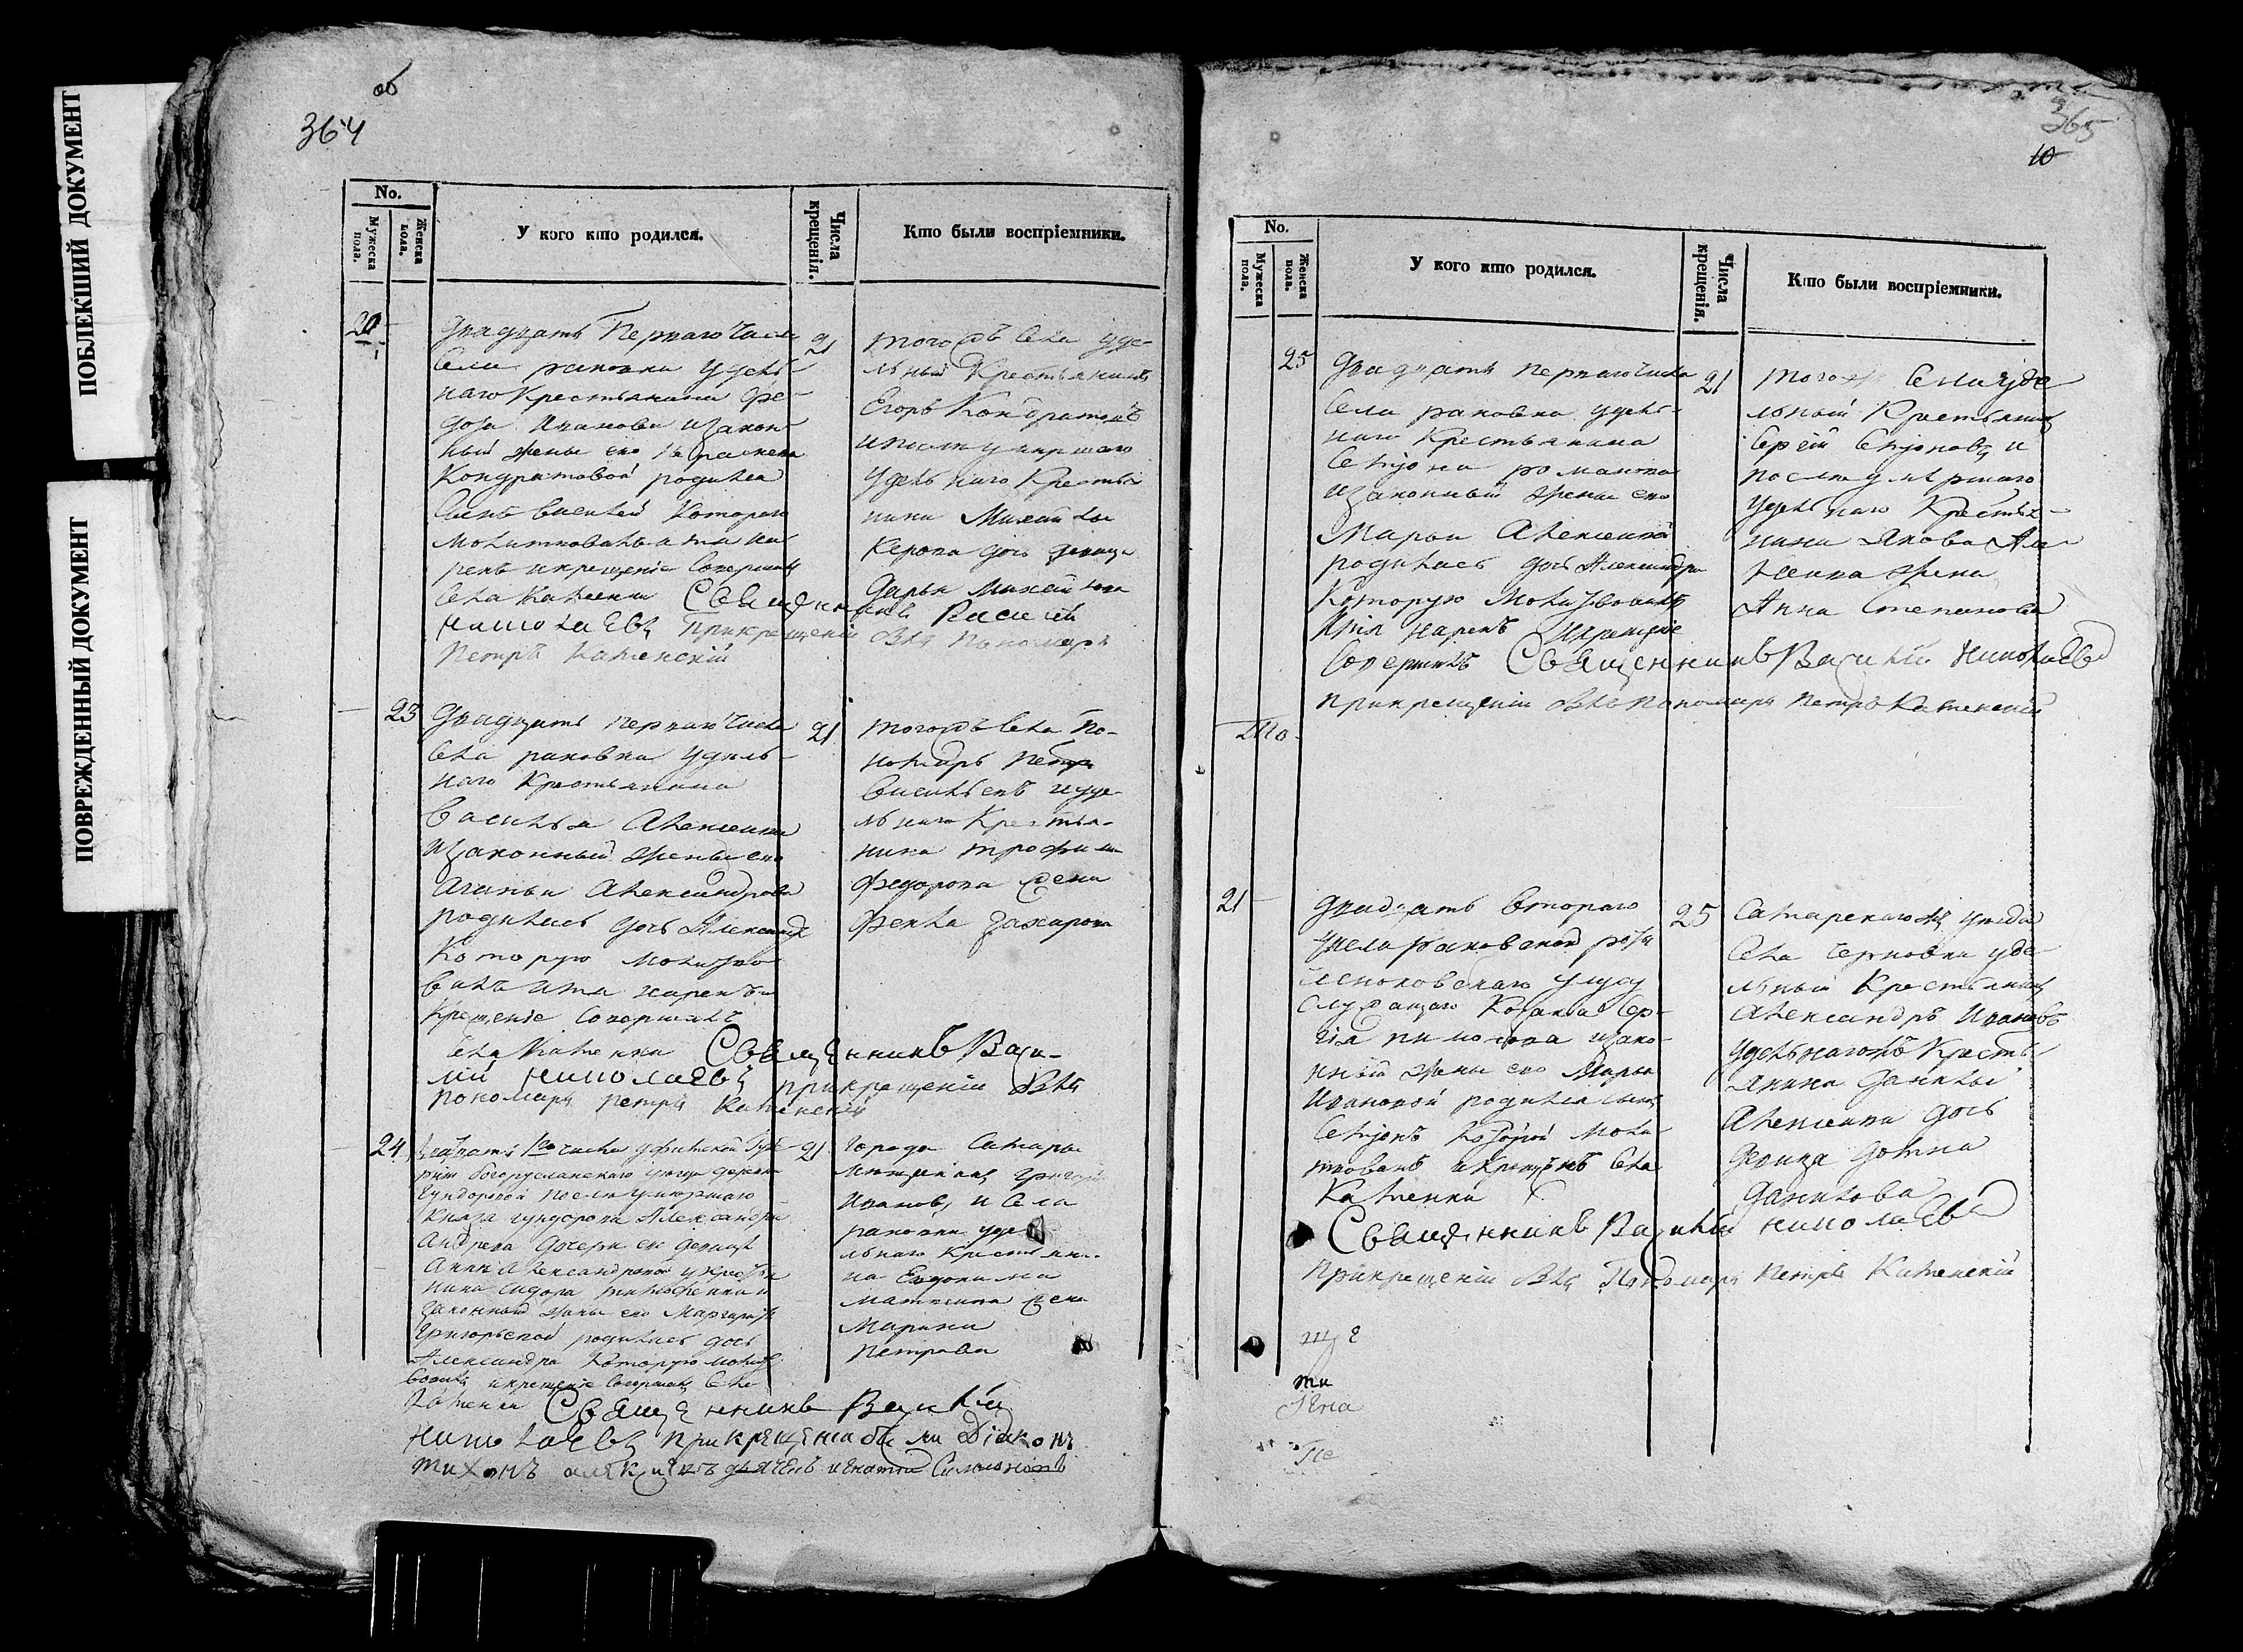 ПОБЛЕКШИЙ ДОКУМЕНТ
ПОВРЕЖДЕННЫЙ ДОКУМЕНТ
об
364
No.
Мужеска пола.
Женска пола.
У кого кто родился.
Числа крещенія.
Кто были воспріемники.
20
двадцать Перваго числа
Села раковки удель-
наго Крестьянина Фе-
дота Иванова изакон-
ный жены его
Кондратовой родился
Сынъ Василей Котораго
молитвовалъ
ренъ икрещеніе Совершилъ
Села Каменки Священникъ Василей
Николаевъ Прикрещеніи былъ Пономарь
Петръ Каменскій
21
тогожъ Села уде-
льный Крестьянинъ
Егоръ Кондратовъ
ипослѣ умершаго
Удельнаго Крестья
нина Михайлы
дочь девица
Дарья Михайлова
23
Двадцать перваго числа
Села раковки удель-
наго Крестьянина
Василья Алексеева
изаконный жены его
Агафьи Александровой
родилась дочь Александра
Которую молитво
валъ имя нарекъ и
Крещеніе Совершилъ
Села Каменки Священникъ Васи-
лий Николаевъ прикрещеніи былъ
пономарь петръ Каменскій
21
тогожъ Села По-
номарь Петръ
Васильевъ иуде-
льнаго Крестья-
нина трофима
федорова жена
фекла Захарова
24
двадцать 1го числа уфимской Губе-
рніи богорусланскаго уезда деревни
Гундоровой после умершаго
Князя гундорова Александра
Андреева дочери его девицы
Анны Александровой укрестья
нина сидора тимофеева и
законной жены его Маргариты
Григорьевой родилась дочь
Александра Которую молитво
вовалъ икрещеніе Совершилъ Села
Каменки Священникъ Василий
Николаевъ прикрещении были Діаконъ
тихонъ алексиевъ дьячекъ игнатей Симионовъ
21
города Самары
мещанинъ григорей
Ивановъ и Села
раковки удел
льнаго Крестьяни-
на Евдокима
матвеева жена
Марина
Петрова
365
10
No.
Мужеска пола.
Женска пола.
У кого кто родился.
Числа крещенія.
Кто были воспріемники.
25
Двадцать перваго числа
Села раковки удель-
наго Крестьянина
Семиона романова
изаконный жены его
Марьи Алексеевой
родилась дочь Александра
Которую молитвовалъ
Имя нарекъ Икрещеніе
Совершилъ Священникъ Василий Николаевъ
прикрещеніи былъ Пономарь Петръ Каменскій
21
тогожъ Села уде
льный Крестьянинъ
Сергей Семионовъ и
после умершаго
Удельнаго Крестья-
нина Якова Але-
ксеева жена
Анна Степанова
21
двадцать втораго
числа раковской роты
улусу
Служащаго Козака Сер-
гія пимонова изако-
нный жены его Марьи
Ивановой родился сынъ
Семионъ Которой моли-
твованъ икрещенъ Села
Каменки
Священникъ Василий николаевъ
Прикрещеніи былъ Пономарь Петръ Каменскій
25
Самарскаго уезда
Села Черновки уде-
льный Крестьянинъ
Александръ Ивановъ
Удельнагожъ Кресть-
янина Данилы
Алексеева дочь
Девица домна
Данилова
ще
ти
Пе